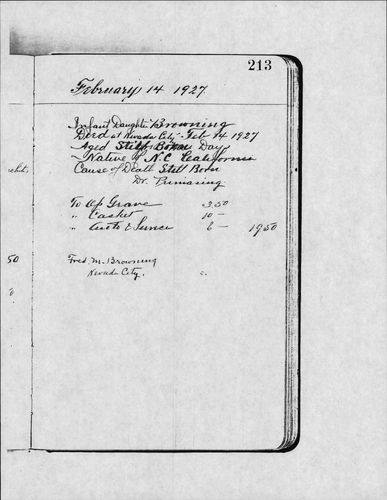 213
February 14 1927.
Infant Daughter Browning
Died at Nevada City Feb 14 1927
Aged Still Born Days
Native of N.C California
Cause of Death Still Born
Dr.
To Op Grave 3.50
" Casket 10 -
" Auto & Service 6 - 19 50
50
Fred. M. Browning
Nevada City.